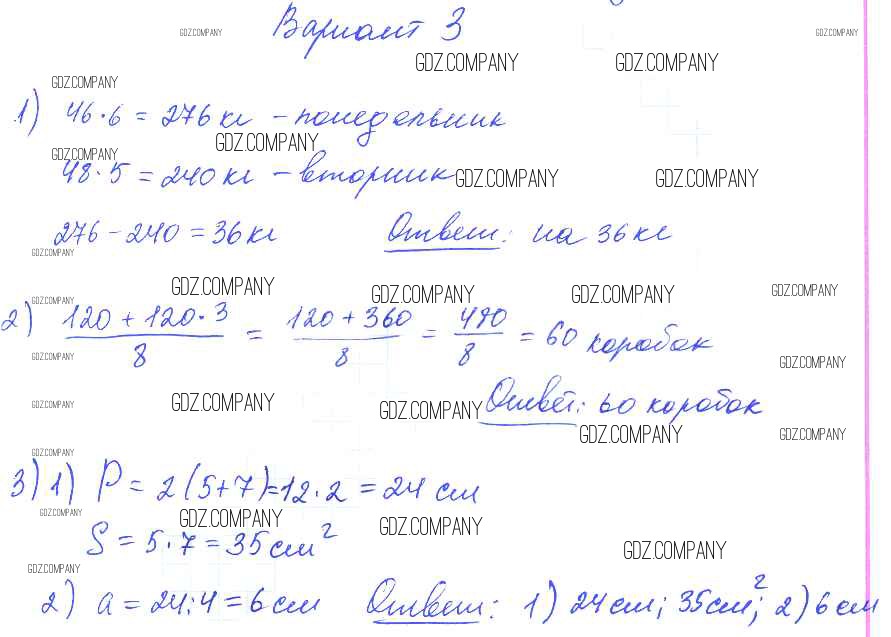 Вариант 3
GDZ.COMPANY GDZ.COMPANY
GDZ.COMPANY GDZ.COMPANY
GDZ.COMPANY
1) 46·6 = 276 кг – понедельник
GDZ.COMPANY
GDZ.COMPANY
48·5 = 240 кг – вторник
GDZ.COMPANY GDZ.COMPANY
276 – 240 = 36 кг Ответ: на 36 кг
GDZ.COMPANY
GDZ.COMPANY GDZ.COMPANY GDZ.COMPANY GDZ.COMPANY
GDZ.COMPANY
2) (120 + 120·3)/8 = (120 + 360)/8 = 480/8 = 60 коробок
GDZ.COMPANY GDZ.COMPANY
Ответ: 60 коробок
GDZ.COMPANY GDZ.COMPANY GDZ.COMPANY
GDZ.COMPANY GDZ.COMPANY
GDZ.COMPANY
3) 1) P = 2(5+7)=12·2 = 24 см
GDZ.COMPANY GDZ.COMPANY GDZ.COMPANY
S = 5·7 = 35 см²
GDZ.COMPANY
GDZ.COMPANY
2) a = 24:4 = 6 см Ответ: 1) 24 см; 35 см²; 2) 6 см